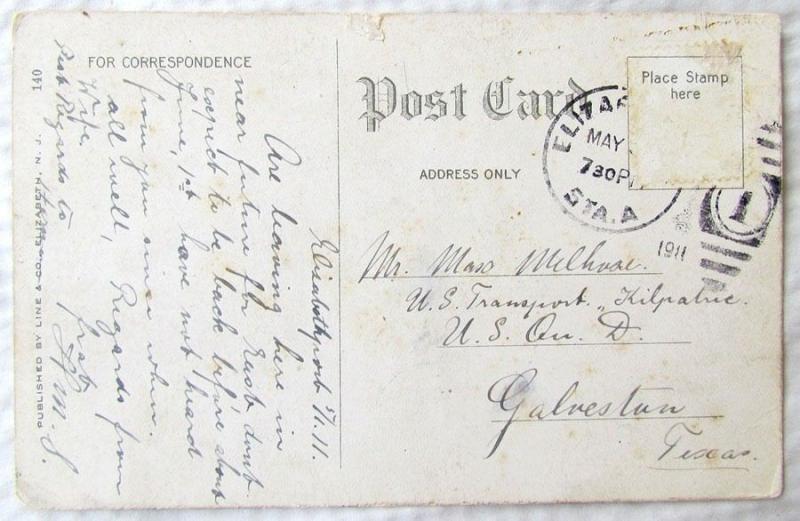 FOR CORRESPONDENCE
Post Card
ADDRESS ONLY
Place Stamp
here
ELIZA
MAY
730P
STA. A
1911
1
Elizabethport 5/1.11.
Are leaving here in
near future for East dont
expect to be back before about
June, 1st have not heard
from you since when.
all well, Regards from
Wife.
Best Regards to
frat
M. S.
Mr. Max Melhose.
U.S. Transport. "Kilpatric.
U. S. Qu. D.
Galveston
Texas.
140
PUBLISHED BY LINE & CO. ELIZABETH, N. J.